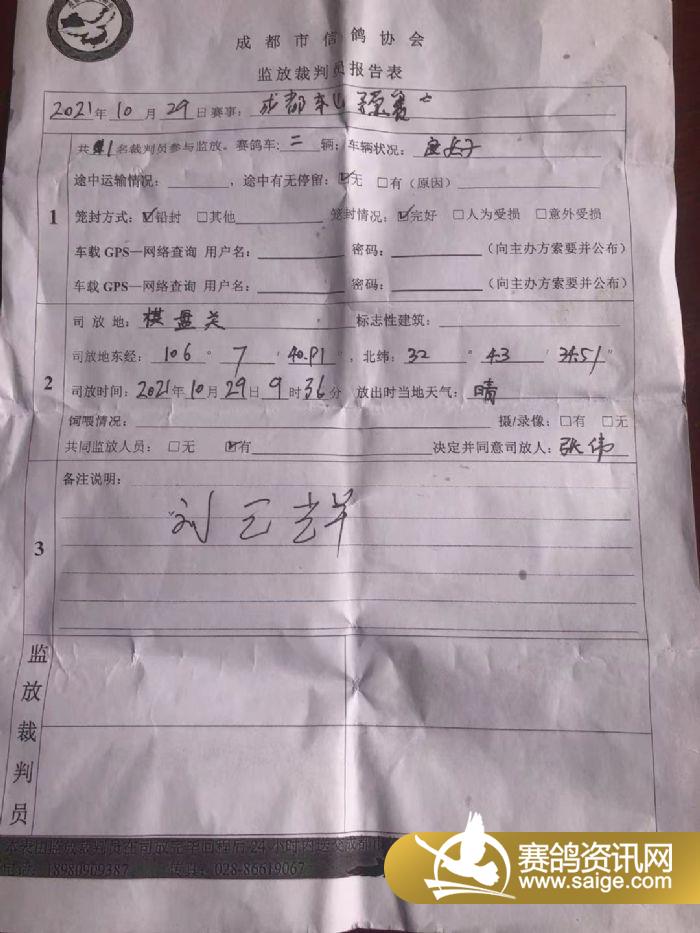 成都市信鸽协会
监放裁判员报告表
2021年10月29日赛事：成都
共1名裁判员参与监放。赛鸽车：二辆；车辆状况：良好
途中运输情况：，途中有无停留：☑无 □有（原因）
1 笼封方式：☑铅封 □其他 笼封情况：☑完好 □人为受损 □意外受损
车载GPS—网络查询 用户名： 密码： （向主办方索要并公布）
车载GPS—网络查询 用户名： 密码： （向主办方索要并公布）
司放地：棋盘关 标志性建筑：
司放地东经：106°7′40.91″，北纬：32°43′34.51″
2 司放时间：2021年10月29日9时36分 放出时当地天气：晴
饲喂情况： 摄/录像：□有 □无
共同监放人员：□无 ☑有 决定并同意司放人：张伟
备注说明：
刘
3
监放裁判员
18980909387 028-86619067
赛鸽资讯网
www.saige.com